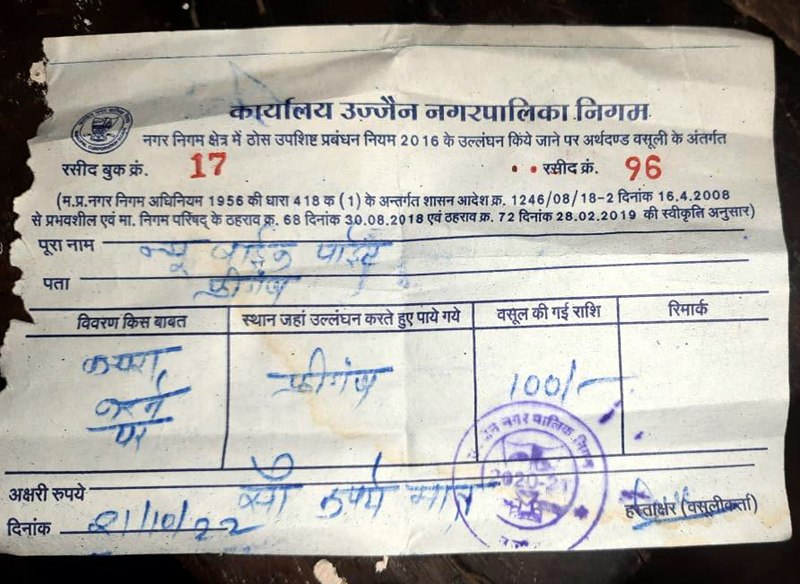 कार्यालय उज्जैन नगरपालिका निगम
नगर निगम क्षेत्र में ठोस उपशिष्ट प्रबंधन नियम 2016 के उल्लंघन किये जाने पर अर्थदण्ड वसूली के अंतर्गत
रसीद बुक क्रं. 17 रसीद क्रं. 96
(म.प्र.नगर निगम अधिनियम 1956 की धारा 418 क (1) के अन्तर्गत शासन आदेश क्र. 1246/08/18-2 दिनांक 16.4.2008
से प्रभवशील एवं मा. निगम परिषद् के ठहराव क्र. 68 दिनांक 30.08.2018 एवं ठहराव क्र. 72 दिनांक 28.02.2019 की स्वीकृति अनुसार)
पूरा नाम न्यू वाईन पाईंट
पता फ्रीगंज
विवरण किस बाबत स्थान जहां उल्लंघन करते हुए पाये गये वसूल की गई राशि रिमार्क
कचरा फ्रीगंज 100/-
करने
पर
नगर पालिक निगम
2020-21
अक्षरी रुपये सौ रुपये मात्र
हस्ताक्षर (वसूलीकर्ता)
दिनांक 21/10/22